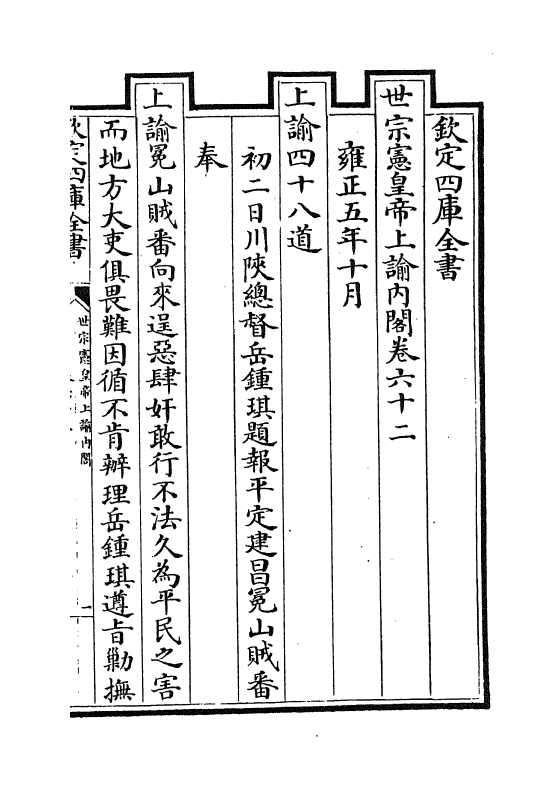 欽定四庫全書
世宗憲皇帝上諭內閣卷六十二
雍正五年十月
上諭四十八道
初二日川陜總督岳鍾琪題報平定建昌冕山賊番
奉
上諭冕山賊番向來逞惡肆奸敢行不法久為平民之害
而地方大吏俱畏難因循不肯辦理岳鍾琪遵旨勦撫
欽定四庫全書
世宗憲皇帝上諭內閣
一